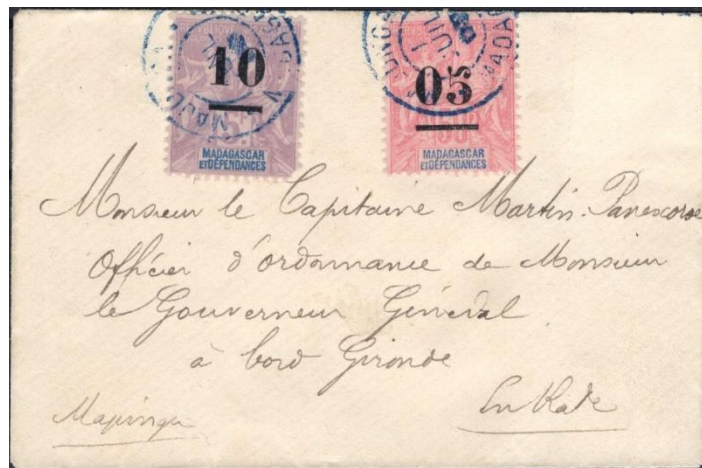 10 05
MADAGASCAR MADAGASCAR
ET DÉPENDANCES ET DÉPENDANCES
Monsieur le Capitaine Martin-Panescorse
Officier d'ordonnance de Monsieur
le Gouverneur Général
à bord Gironde
En Rade